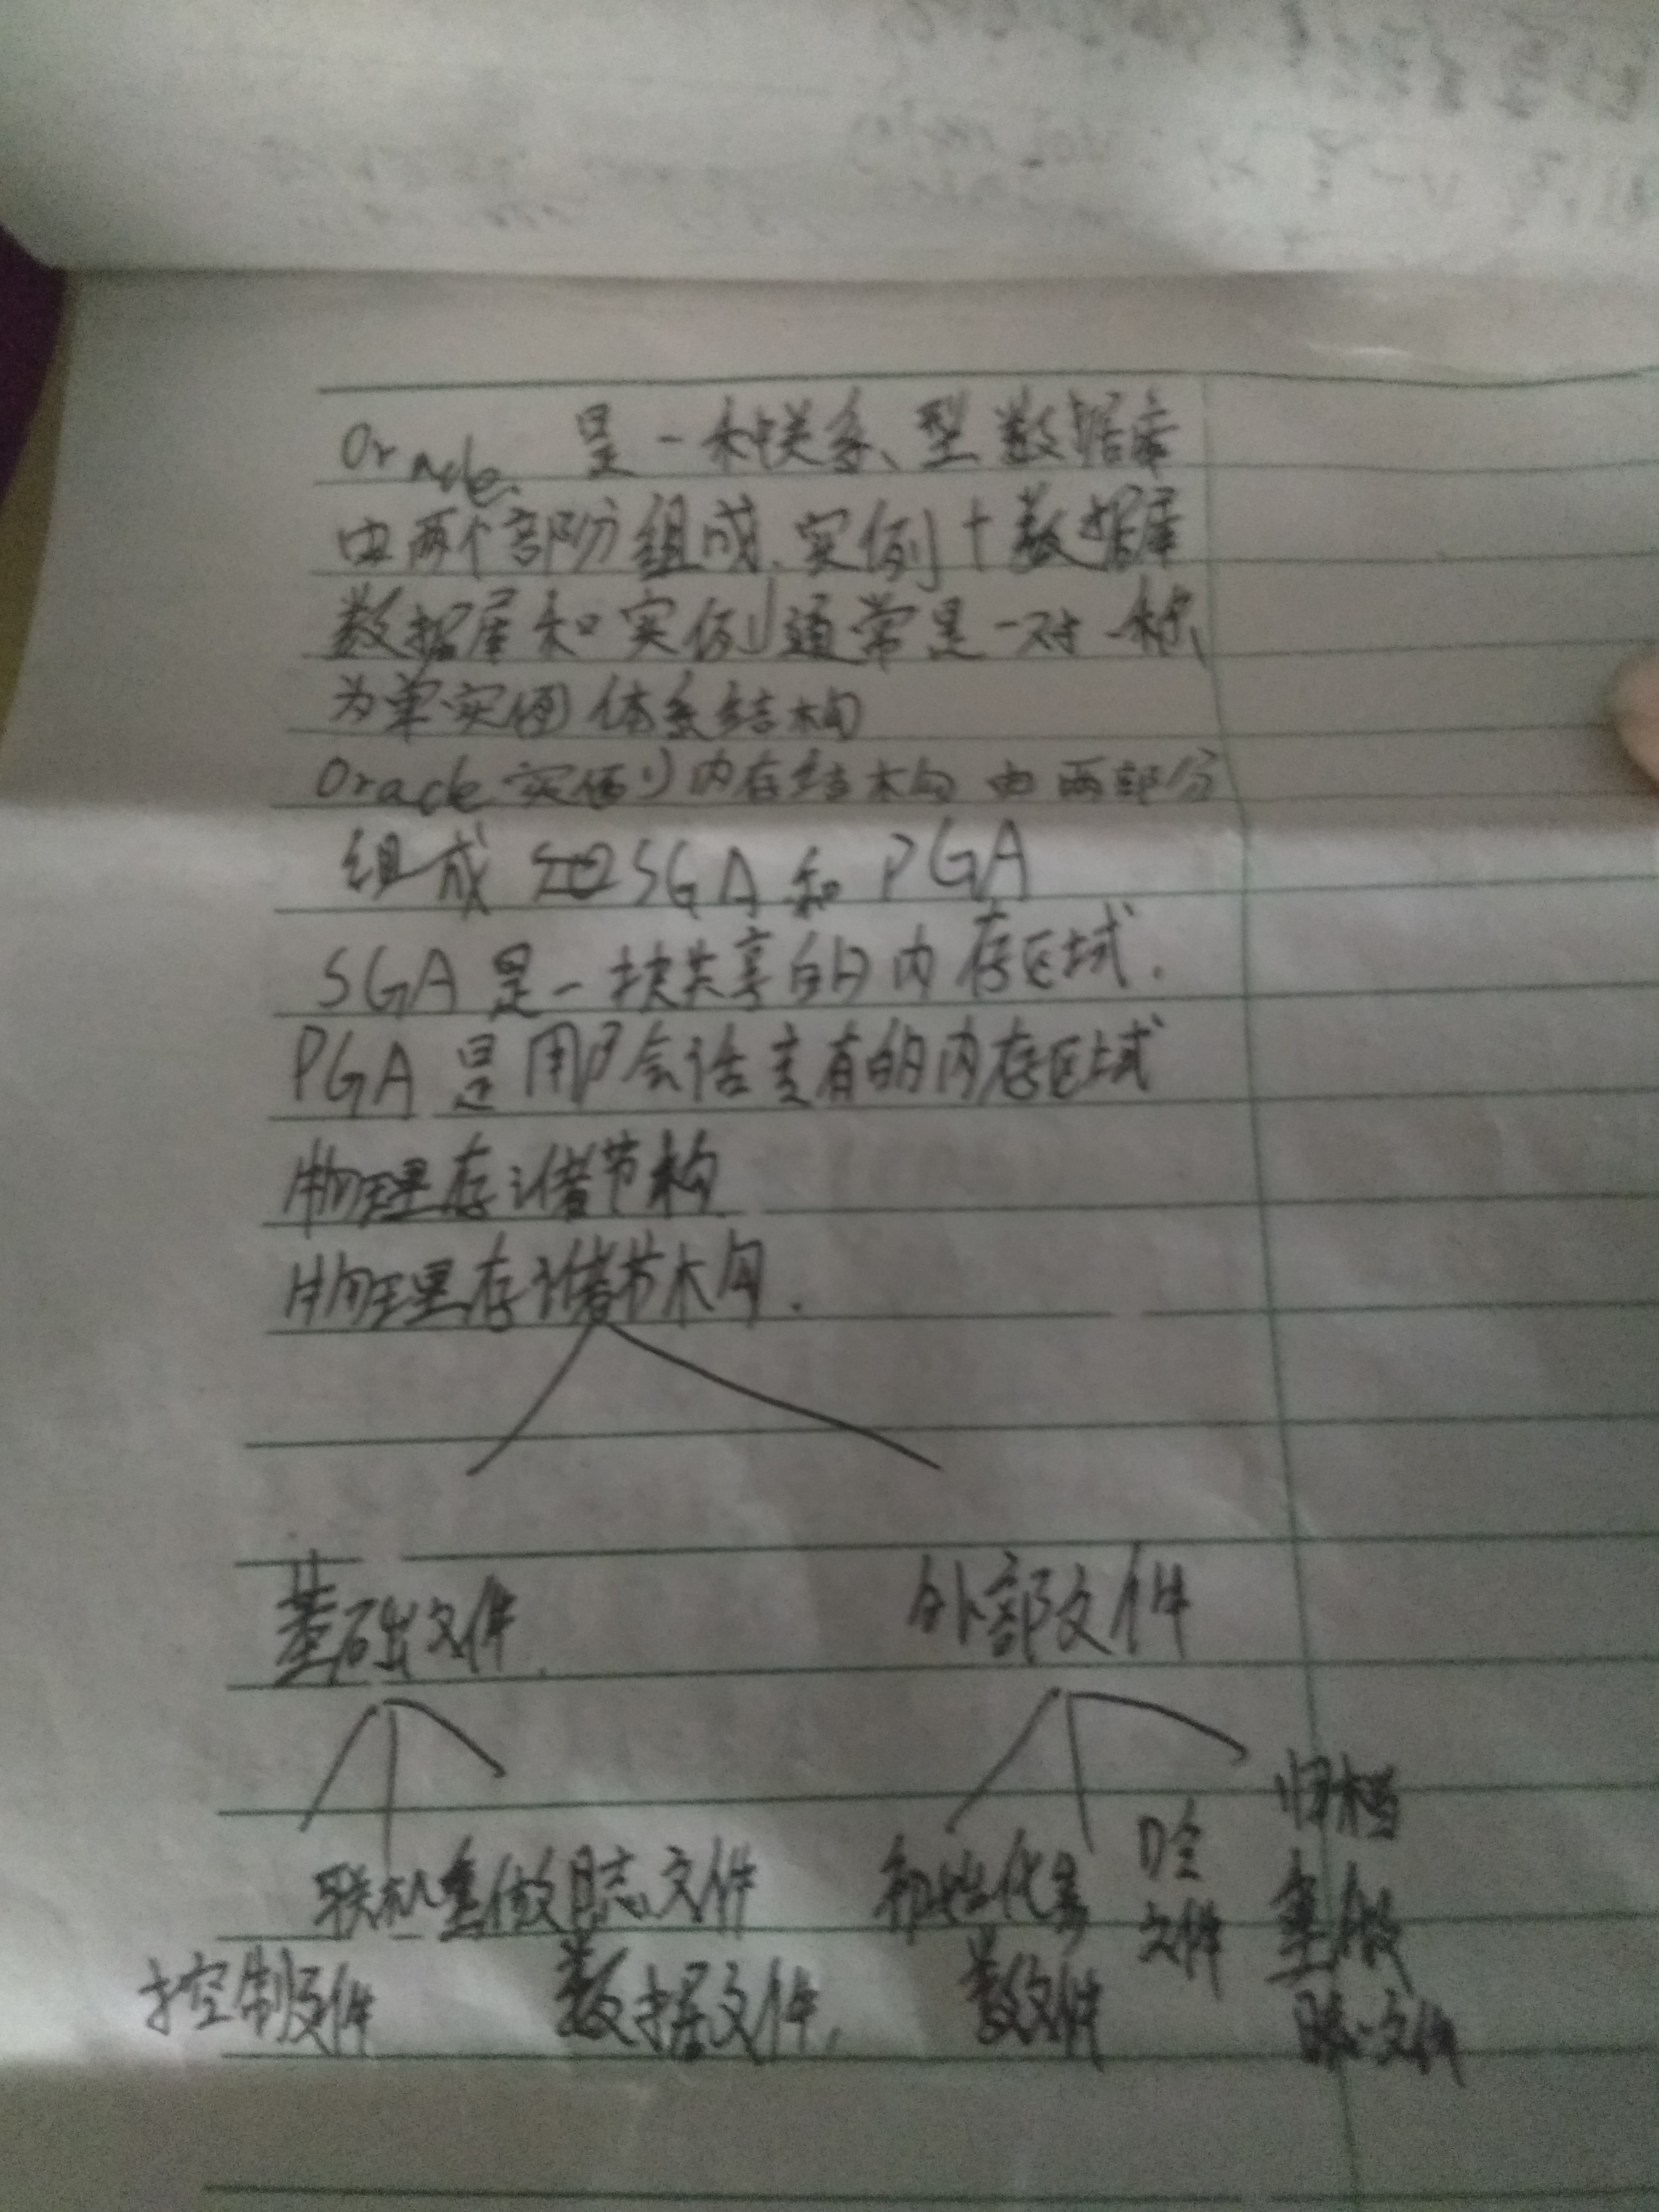 Oracle 是一种关系型数据库
由两个部分组成.实例+数据库
数据库和实例通常是一对一称
为单实例体系结构
Oracle实例内存结构由两部分
组成 SGA和PGA
SGA是一块共享的内存区域.
PGA是用户会话享有的内存区域
物理存储节构
物理存储节构.
基础文件. 外部文件
控制文件
联机重做日志文件
数据文件.
初始化参
数文件
口令
文件
归档
重做
日志文件